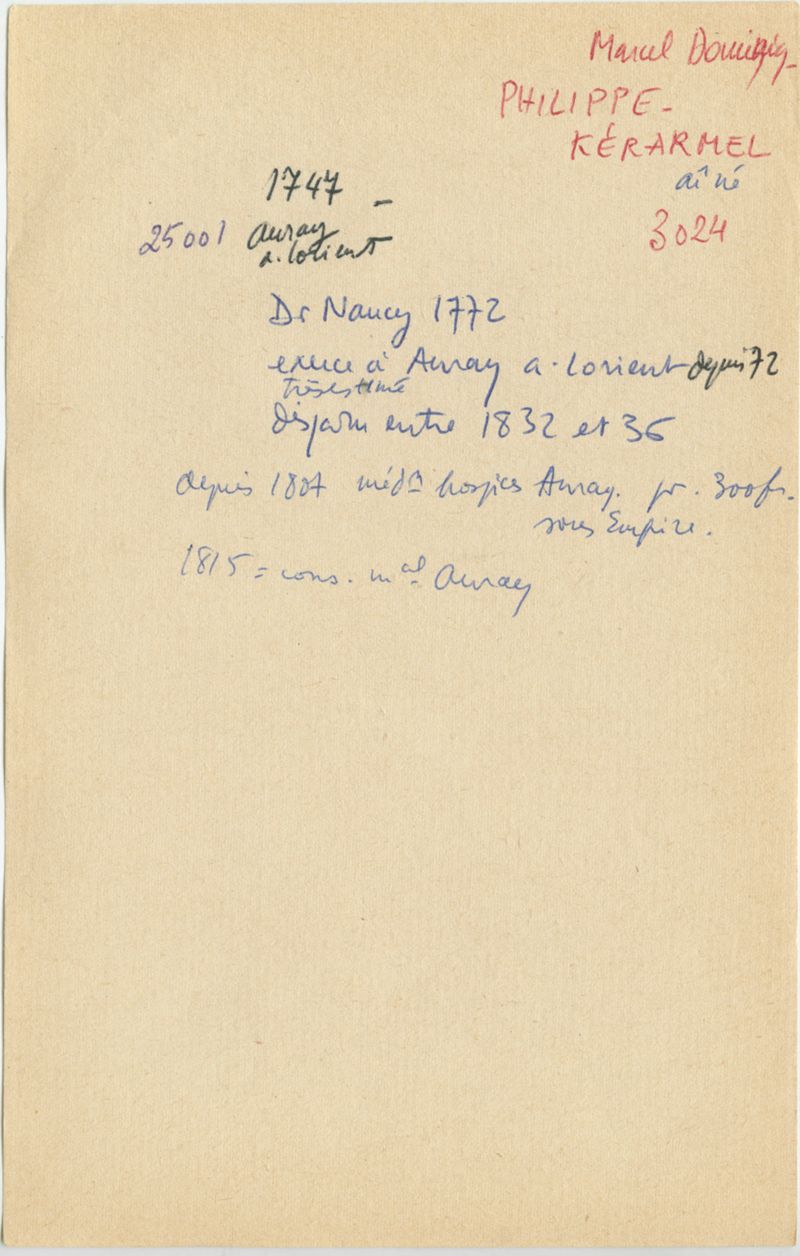 Marcel Dominiq-
PHILIPPE-
KÉRARMEL
aîné
3024
1747 -
25001 Auray
a. Lorient
Dr Nancy 1772
exerce à Auray a. Lorient depuis 72
très estimé
disparu entre 1832 et 36
depuis 1807 médn hospices Auray. pr. 300 fr.
sous Empire.
1815 = cons. mal Auray